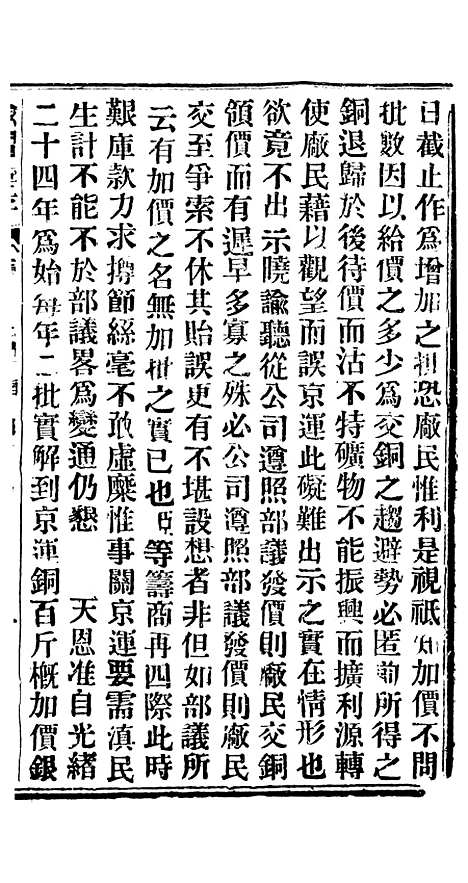 日截止作爲增加之批恐廠民惟利是視祗知加價不問
批數因以給價之多少爲交銅之趨避勢必匿前所得之
銅退歸於後待價而沽不特礦物不能振興而擴利源轉
使廠民藉以觀望而誤京運此礙難出示之實在情形也
欲竟不出示曉諭聽從公司遵照部議發價則廠民交銅
領價而有遲早多寡之殊必公司遵照部議發價則廠民
交至爭索不休其貽誤更有不堪設想者非但如部議所
云有加價之名無加批之實已也臣等籌商再四際此時
艱庫款力求撙節絲毫不敢虛糜惟事關京運要需滇民
生計不能不於部議畧爲變通仍懇　天恩准自光緒
二十四年爲始每年二批實解到京運銅百斤概加價銀